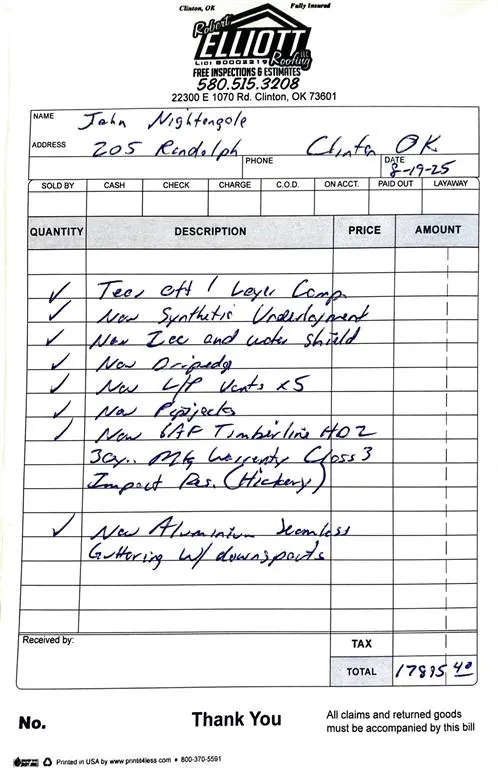 Clinton, OK Fully Insured
Robert
ELLIOTT
Roofing LLC
LIC# 80002219
FREE INSPECTIONS & ESTIMATES
580.515.3208
22300 E 1070 Rd. Clinton, OK 73601
NAME John Nightengale
ADDRESS 205 Randolph Clinton OK
PHONE DATE 8-19-25
SOLD BY CASH CHECK CHARGE C.O.D. ON ACCT. PAID OUT LAYAWAY
QUANTITY DESCRIPTION PRICE AMOUNT
✓ Tear off 1 Layer Comp.
✓ New Synthetic Underlayment
✓ New Ice and water shield
✓ New Dripedge
✓ New L/P Vents x5
✓ New Pipejacks
✓ New GAF Timberline HDZ
30yr. Mfg Warranty Class 3
Impact Res. (Hickory)
✓ New Aluminium Seamless
Guttering w/ downspouts
Received by: TAX
TOTAL 17895 40
No. Thank You All claims and returned goods
must be accompanied by this bill
Printed in USA by www.printit4less.com • 800-370-5591